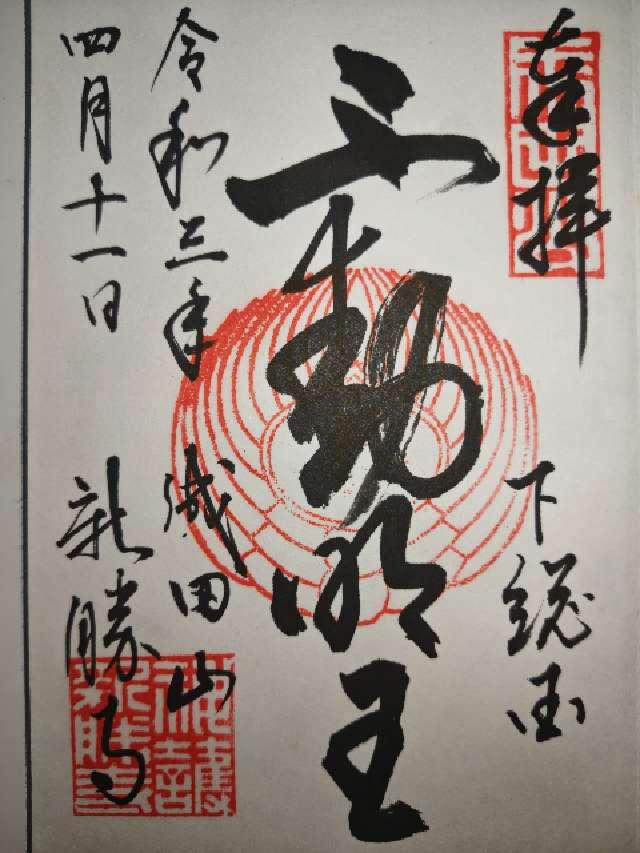 奉拝
下総国
不動明王
令和三年
四月十一日
成田山
新勝寺
神護
新勝寺